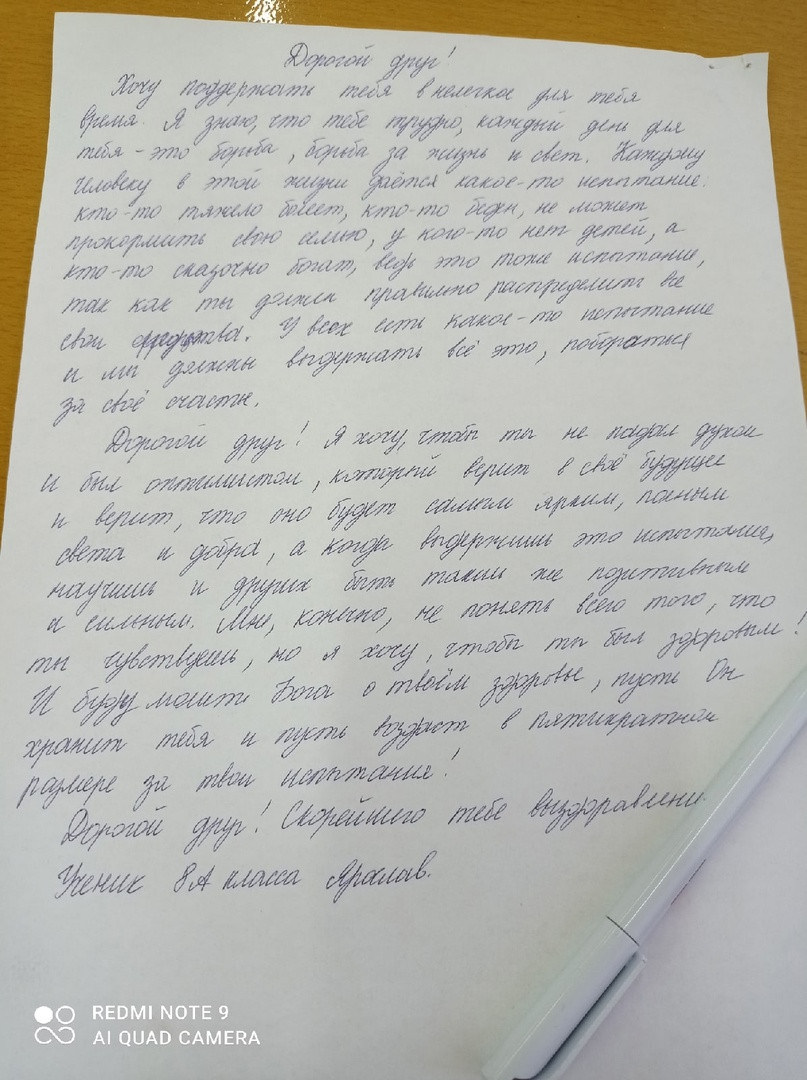 Дорогой друг!
Хочу поддержать тебя в нелегкое для тебя
время. Я знаю, что тебе трудно, каждый день для
тебя - это борьба, борьба за жизнь и свет. Каждому
человеку в этой жизни даётся какое-то испытание:
кто-то тяжело болеет, кто-то беден, не может
прокормить свою семью, у кого-то нет детей, а
кто-то сказочно богат, ведь это тоже испытание,
так как ты должен правильно распределить все
свои средства. У всех есть какое-то испытание
и мы должны выдержать всё это, побороться
за своё счастье.
Дорогой друг! Я хочу, чтобы ты не падал духом
и был оптимистом, который верит в своё будущее
и верит, что оно будет самым ярким, полным
света и добра, а когда выдержишь это испытание,
научишь и других быть таким же позитивным
и сильным. Мне, конечно, не понять всего того, что
ты чувствуешь, но я хочу, чтобы ты был здоровым!
И буду молить Бога о твоём здоровье, пусть Он
хранит тебя и пусть воздаст в пятикратном
размере за твои испытания!
Дорогой друг! Скорейшего тебе
Ученик 8А класса Ярослав.
REDMI NOTE 9
AI QUAD CAMERA